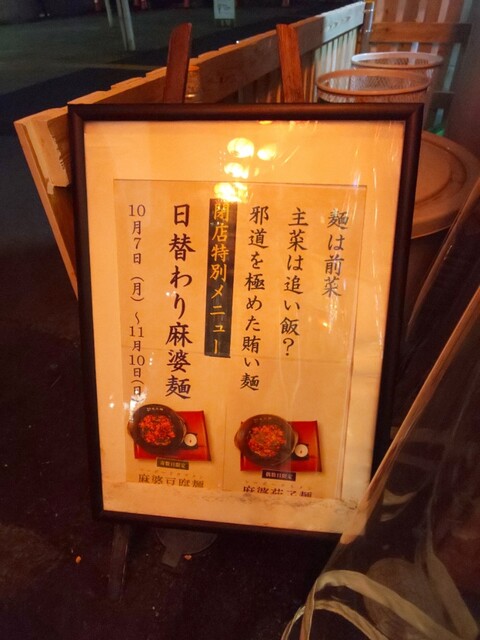 麺は前菜
主菜は追い飯？
邪道を極めた賄い麺
閉店特別メニュー
日替わり麻婆麺
10月7日（月）～11月10日（日）
麻婆茄子麺
麻婆豆腐麺